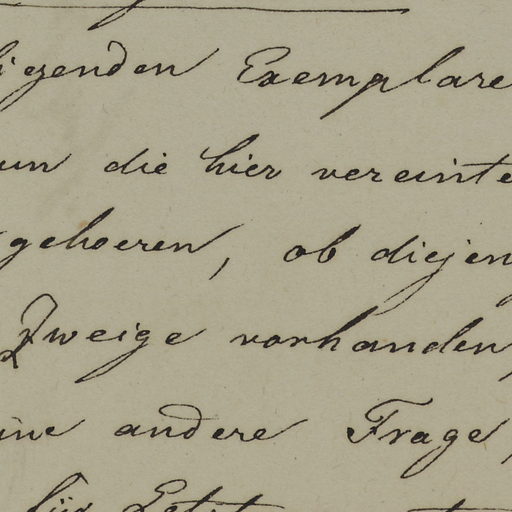 igenden Exemplare
un die hier vereinte
gehoeren, ob diejen
Zweige vorhanden,
ine andere Frage,
für